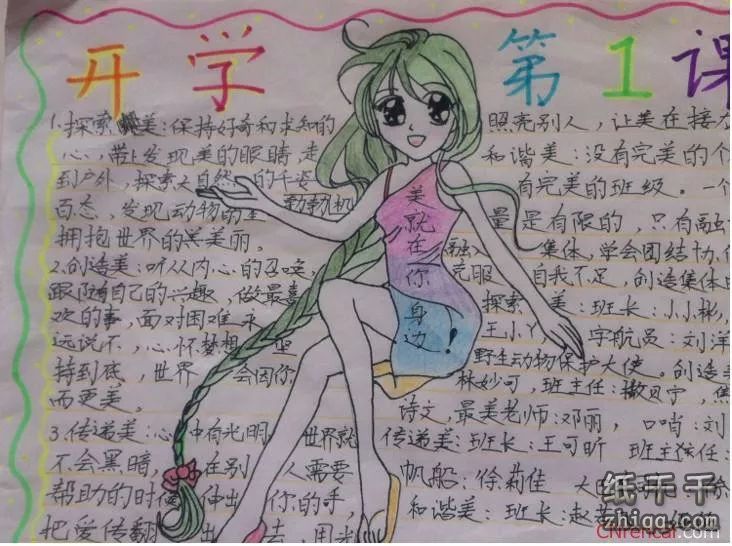 开学第1课
1.探索美:保持好奇和求知的
心,带上发现美的眼睛,走
到户外,探索大自然的千姿
百态,发现动物的生动机
拥抱世界的美丽。
2.创造美:听从内心的召唤,
跟随自己的兴趣,做最喜
欢的事,面对困难永
远说不,心怀梦想,坚
持到底,世界会因你
而更美。
3.传递美:心中有光明,世界就
不会黑暗,在别人需要
帮助的时候伸出你的手,
把爱传翻出去,用光
照亮别人,让美在接力
和谐美:没有完美的个
有完美的班级。一个
量是有限的,只有融
融入集体,学会团结协作
克服自我不足,创造集体的
探索美:班长:小小彬,
王小丫,宇航员:刘洋
野生动物保护大使。创造美
林妙可,班主任:撒贝宁,焦
诗文,最美老师:邓丽,口哨:刘
传递美:班长:王可昕 班主任:
帆船:徐莉佳 大
和谐美:班长:赵
美就在你身边!
纸千千
zhiqq.com
CNrencai.com